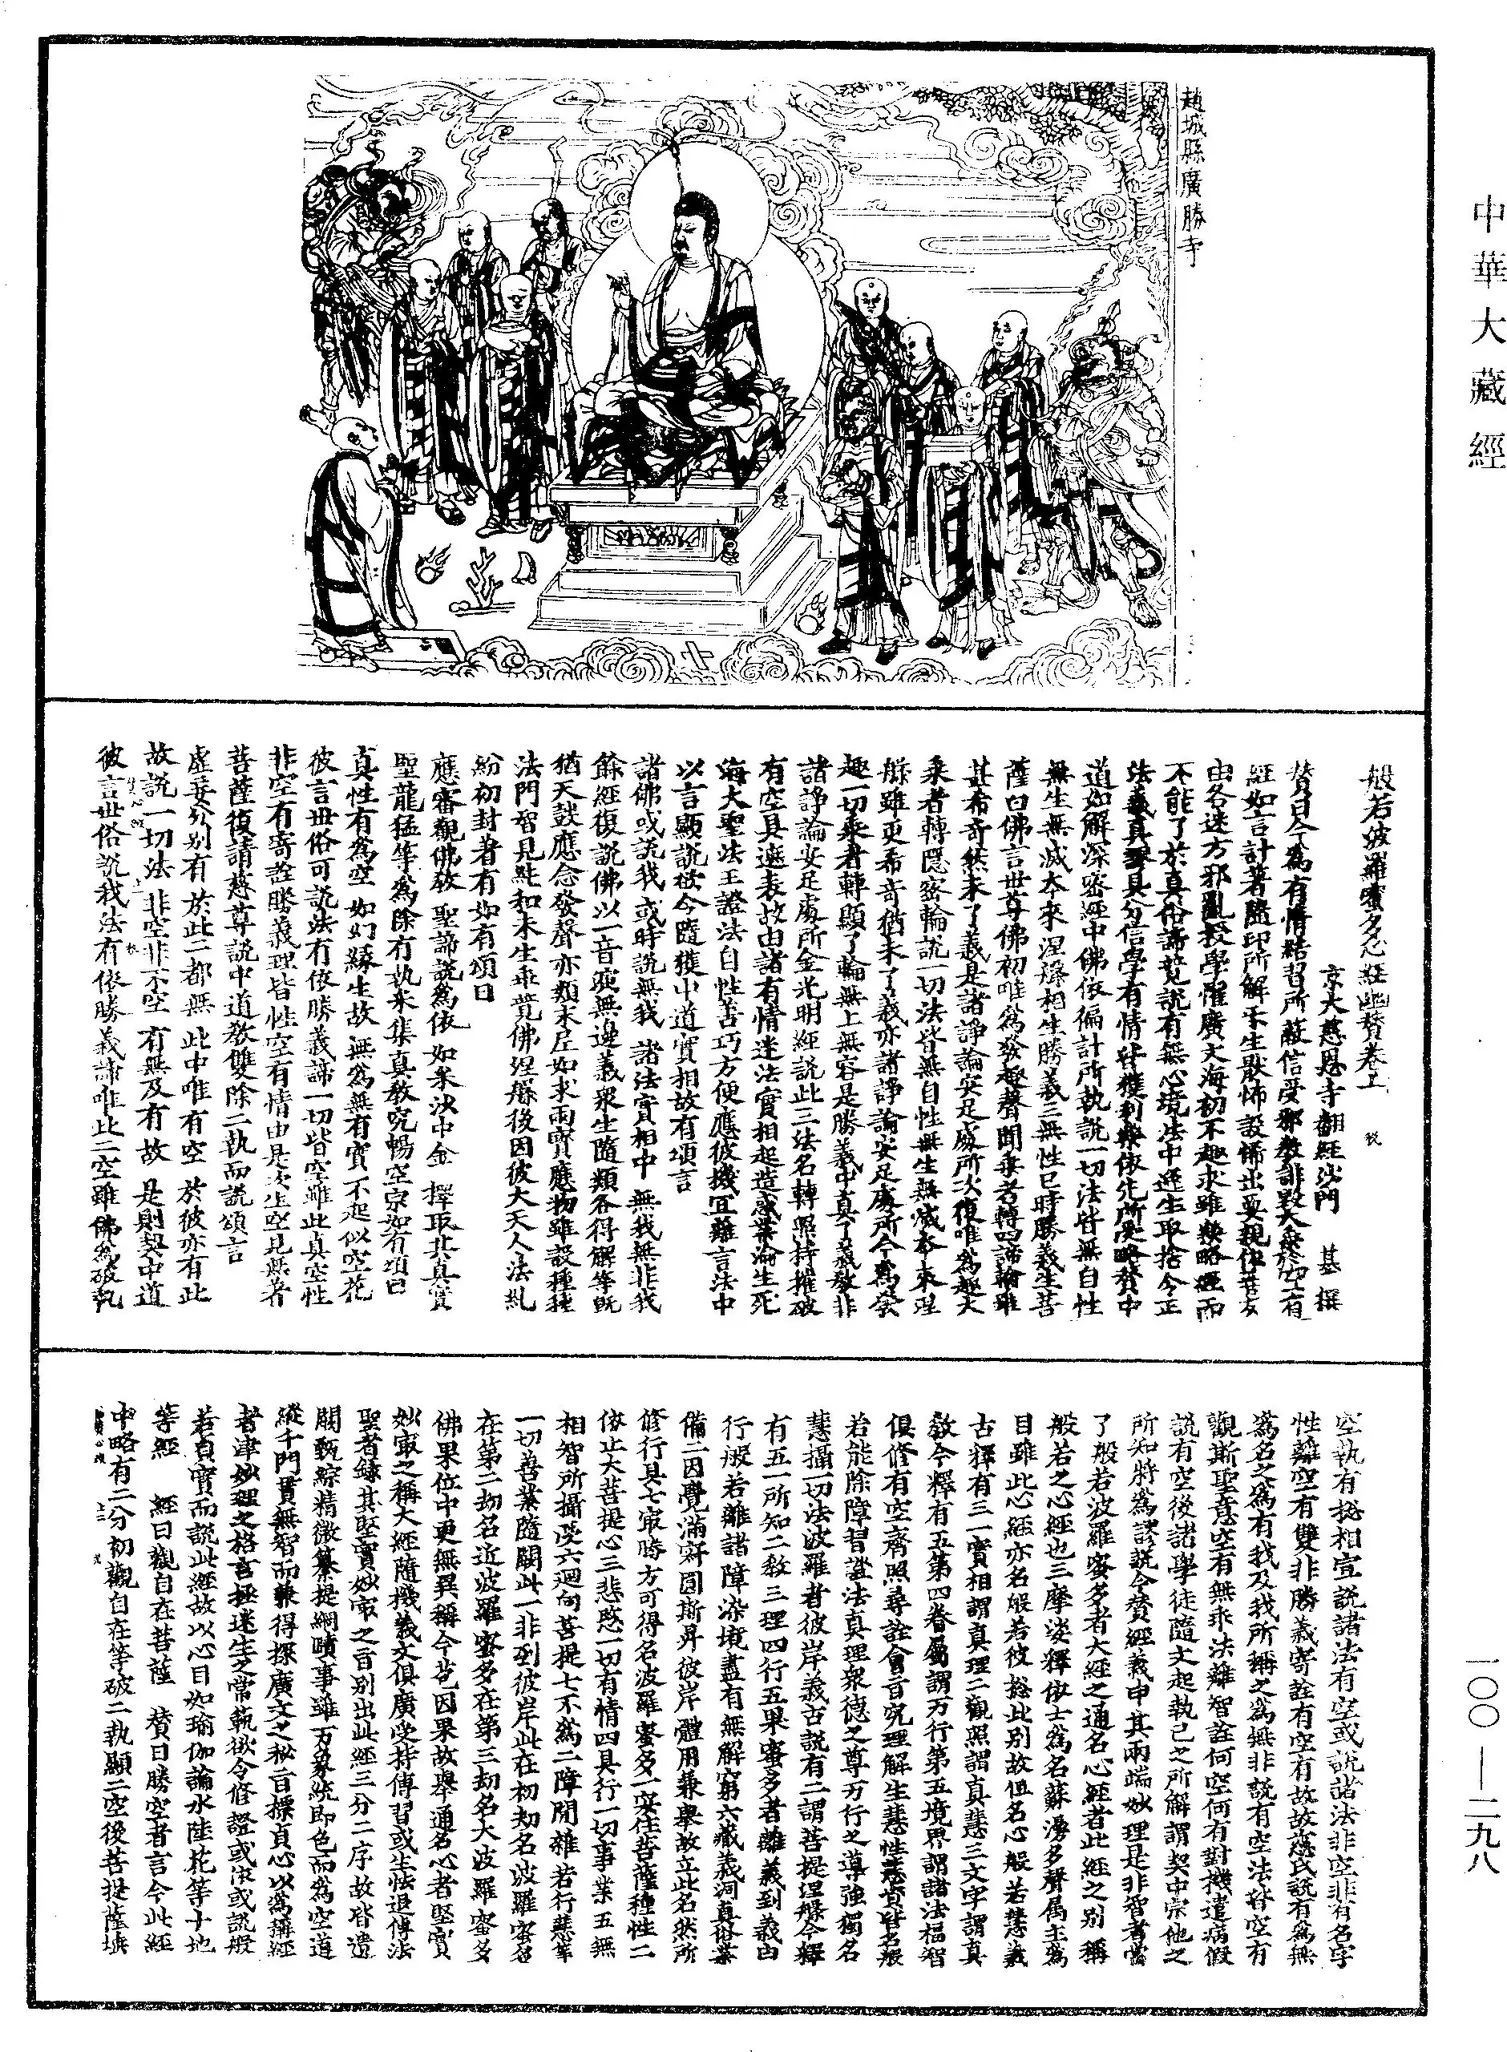 中華大藏經
趙城縣廣勝寺
般若波羅蜜多心經幽贊卷上 說
京大慈恩寺翻經沙門 基 撰
贊曰今為有情結習所蔽信受邪教誹毀大乘於空有
經如言計著隨印所解不生猒怖設希出要親依善友
由各迷方邪亂授學懼廣文海初不趣求雖樂略經而
不能了於真俗諦競說有無心境法中遞生取捨今正
法義真謬具分信學有情皆獲利樂依先所受略贊中
道如解深密經中佛依遍計所執說一切法皆無自性
無生無滅本來涅槃相生勝義三無性已時勝義生菩
薩白佛言世尊佛初唯為發趣聲聞乘者轉四諦輪雖
甚希奇然未了義是諸諍論安足處所次復唯為趣大
乘者轉隱密輪說一切法皆無自性無生無滅本來涅
槃雖更希奇猶未了義亦諸諍論安足處所今為發
趣一切乘者轉顯了輪無上無容是勝義中真了義教非
諸諍論安足處所金光明經說此三法名轉照持摧破
有空具遮表故由諸有情迷法實相起造惑業淪生死
海大聖法王證法自性善巧方便應彼機宜離言法中
以言顯說欲令隨獲中道實相故有頌言
諸佛或說我 或時說無我 諸法實相中 無我無非我
餘經復說佛以一音演無邊義眾生隨類各得解等既
猶天鼓應念發聲亦類末尼如求雨寶應物雖設種種
法門智見純和未生乖競佛涅槃後因彼大天人法糺
紛初封著有如有頌曰
應審觀佛教 聖諦說為依 如采沙中金 擇取其真實
聖龍猛等為除有執采集真教究暢空宗如有頌曰
真性有為空 如幻緣生故 無為無有實 不起似空花
彼言世俗可說法有依勝義諦一切皆空雖此真空性
非空有寄詮勝義理皆性空有情由是次生空見無著
菩薩復請慈尊說中道教雙除二執而說頌言
虛妄分別有 於此二都無 此中唯有空 於彼亦有此
故說一切法 非空非不空 有無及有故 是則契中道
彼言世俗說我法有依勝義諦唯此二空雖佛為破執
空執有揔相宣說諸法有空或說諸法非空非有名字
性離空有雙非勝義寄詮有空有故故慈氏說有為無
為名之為有我及我所稱之為無非說有空法皆空有
觀斯聖意空有無乖法離智詮何空何有對機遣病假
說有空後諸學徒隨文起執己之所解謂契中宗他之
所知將為謬說今贊經義申其兩端妙理是非智者當
了般若波羅蜜多者大經之通名心經者此經之別稱
般若之心經也三摩娑釋依士為名蘇漫多聲屬主為
目雖此心經亦名般若彼揔此別故但名心般若慧義
古釋有三一實相謂真理二觀照謂真慧三文字謂真
教今釋有五第四眷屬謂万行第五境界謂諸法福智
俱修有空齊照尋詮會旨究理解生慧性慧資皆名般
若能除障習證法真理眾德之尊万行之導強獨名
慧攝一切法波羅者彼岸義古說有二謂菩提涅槃今釋
有五一所知二教三理四行五果蜜多者離義到義由
行般若離諸障染境盡有無解窮六藏義洞真俗業
備二因覺滿寂圓斯昇彼岸體用兼舉故立此名然所
修行具七最勝方可得名波羅蜜多一安住菩薩種性二
依止大菩提心三悲愍一切有情四具行一切事業五無
相智所攝受六迴向菩提七不為二障閒雜若行慧等
一切善業隨闕此一非到彼岸此在初劫名波羅蜜多
在第二劫名近波羅蜜多在第三劫名大波羅蜜多
佛果位中更無異稱今苞因果故舉通名心者堅實
妙最之稱大經隨機義文俱廣受持傳習或生怯退傳法
聖者錄其堅實妙最之旨別出此經三分二序故皆遺
闕甄綜精微纂提綱賾事雖万象統即色而為空道
縱千門貫無智而兼得探廣文之秘旨摽貞心以為稱經
者津妙理之格言掖迷生之常範欲令修證或依或說般
若貞實而說此經故以心目如瑜伽論水陸花等十地
等經 經曰觀自在菩薩 贊曰勝空者言今此經
中略有二分初觀自在等破二執顯二空後菩提薩埵
一〇〇—二九八